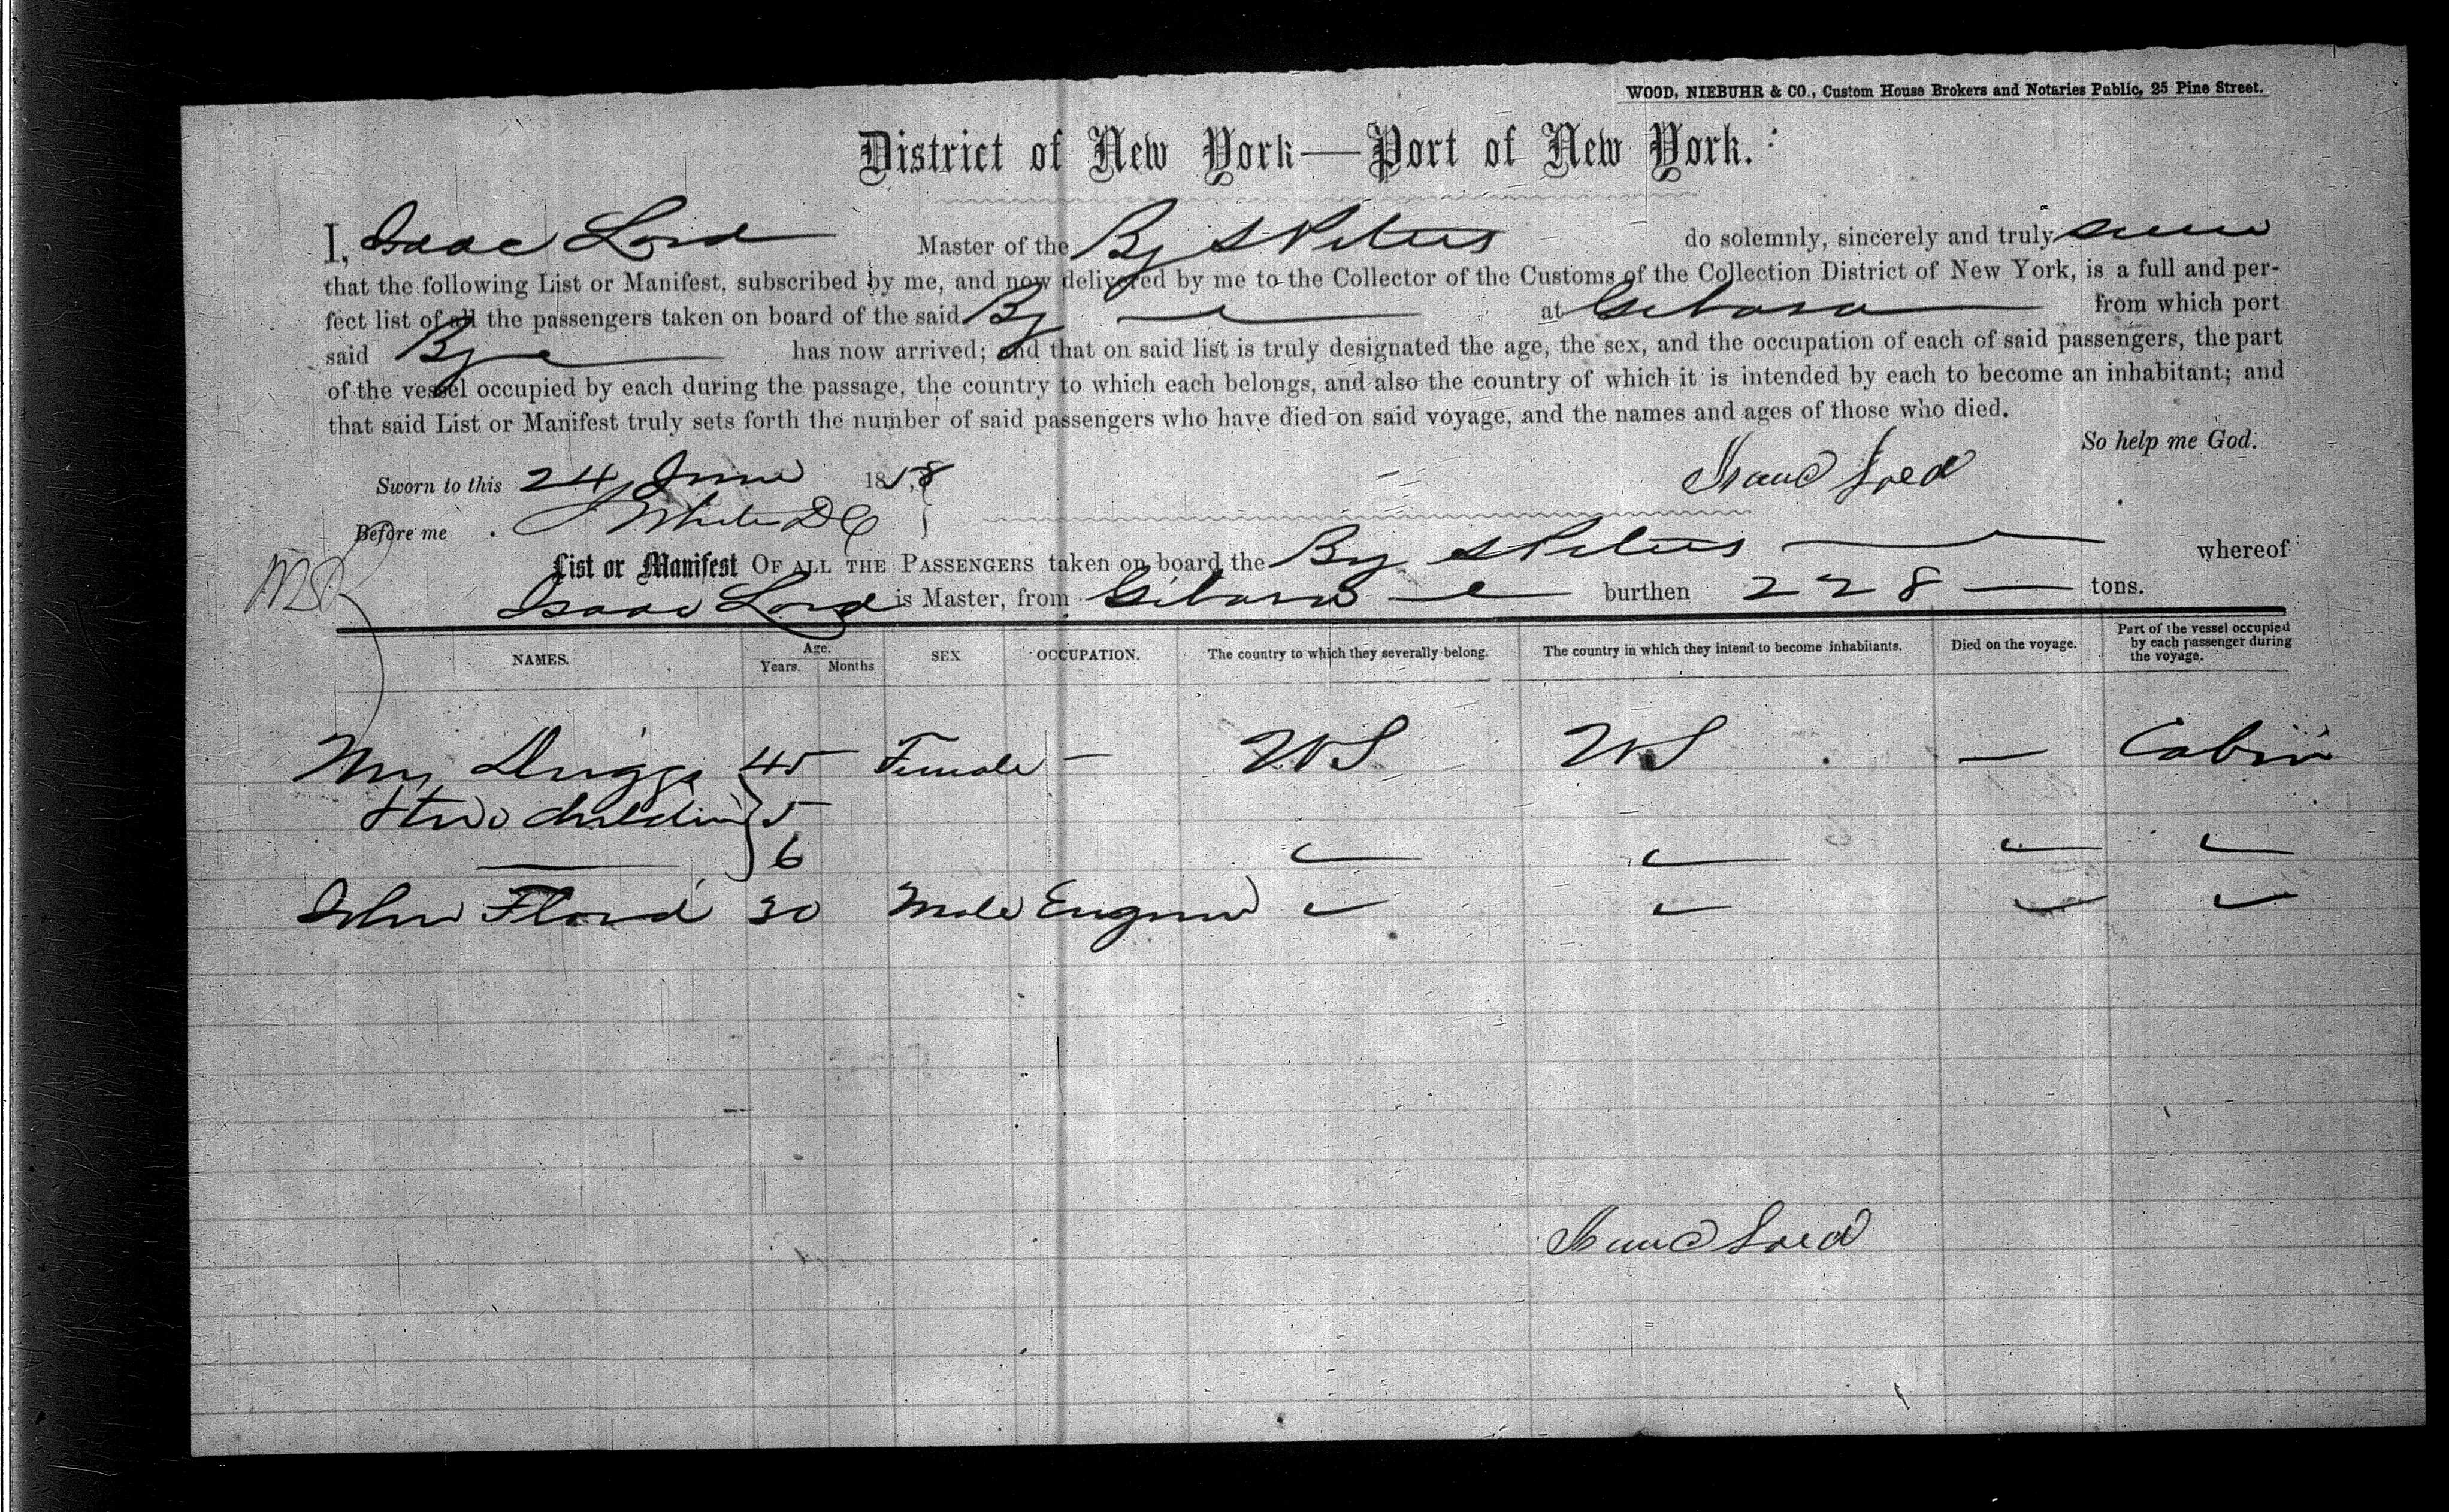 WOOD, NIEBUHR & CO., Custom House Brokers and Notaries Public, 25 Pine Street.
District of New York—Port of New York.
I, Isaac Lord Master of the Bg S Peters do solemnly, sincerely and truly swear
that the following List or Manifest, subscribed by me, and now delivered by me to the Collector of the Customs of the Collection District of New York, is a full and per-
fect list of all the passengers taken on board of the said Bg at Gibara from which port
said Bg has now arrived; and that on said list is truly designated the age, the sex, and the occupation of each of said passengers, the part
of the vessel occupied by each during the passage, the country to which each belongs, and also the country of which it is intended by each to become an inhabitant; and
that said List or Manifest truly sets forth the number of said passengers who have died on said voyage, and the names and ages of those who died.
So help me God.
Sworn to this 24 June 1858 Isaac Lord
Before me White DC
List or Manifest OF ALL THE PASSENGERS taken on board the Bg S Peters whereof
Isaac Lord is Master, from Gibara burthen 228 tons.
NAMES. Age. Years. Months SEX OCCUPATION. The country to which they severally belong. The country in which they intend to become inhabitants. Died on the voyage. Part of the vessel occupied by each passenger during the voyage.
Mrs Driggs 45 Female — US US — Cabin
& two children 5
6
John Floyd 30 Male Engineer
Isaac Lord